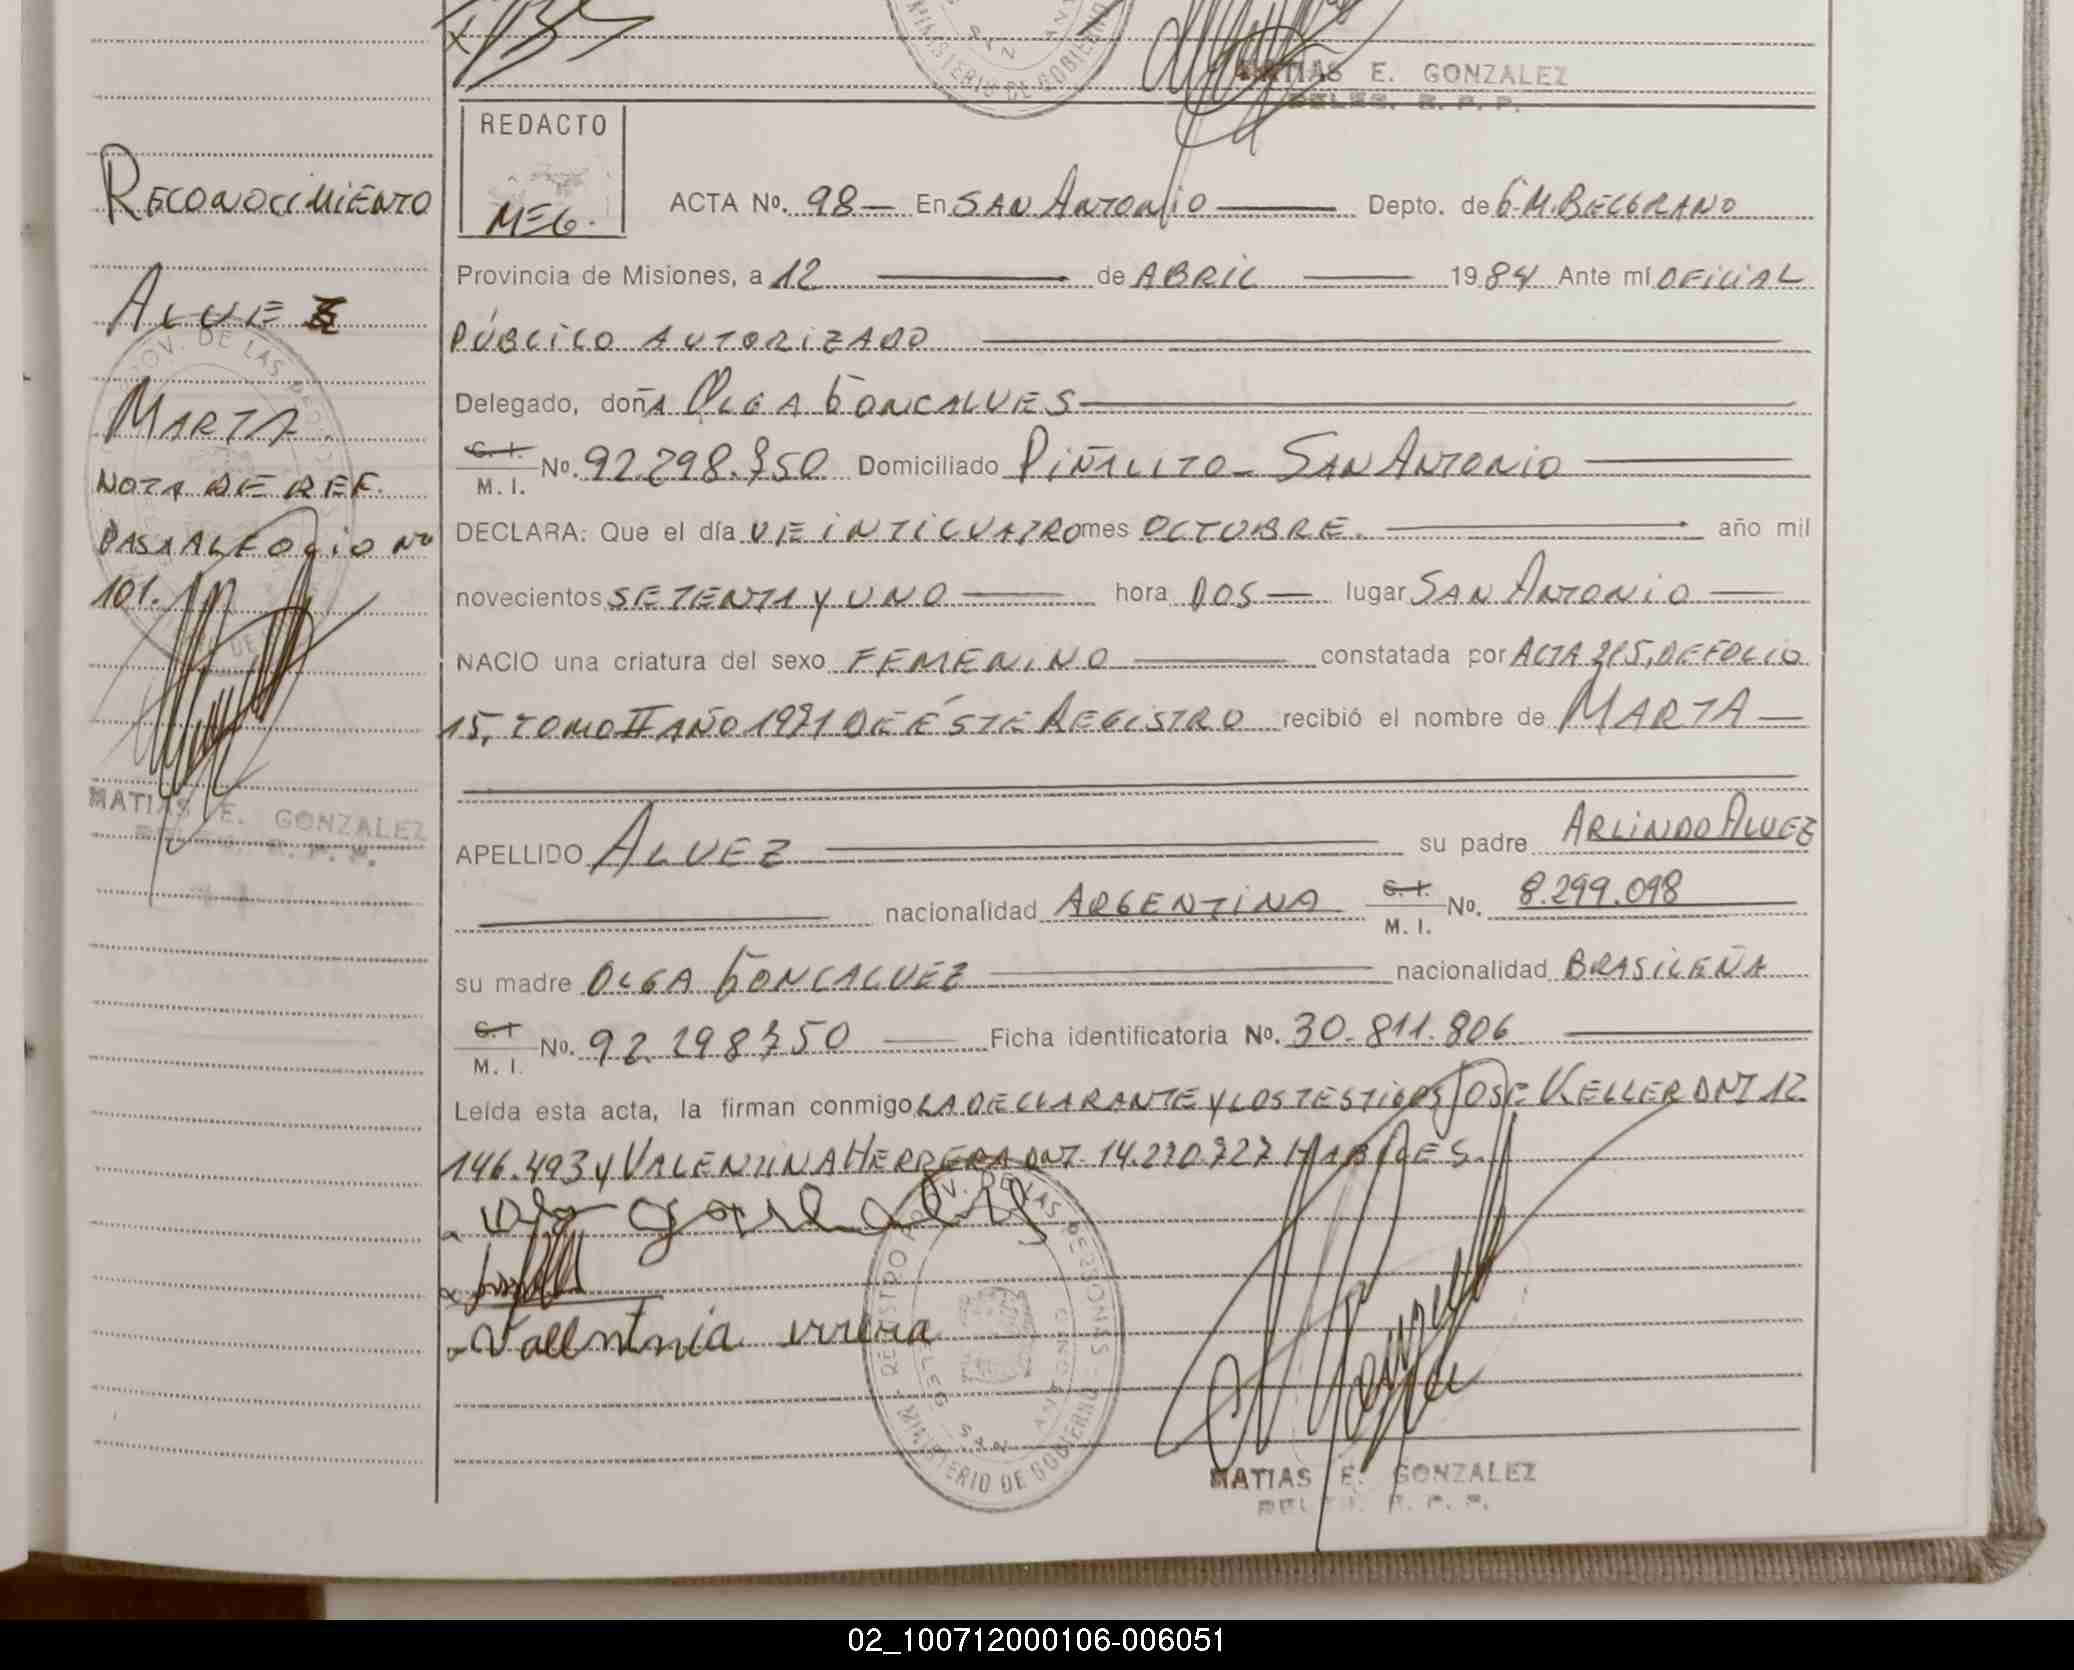 MATIAS E. GONZALEZ
DELEG. R. P. P.
REDACTO
MEG.
RECONOCIMIENTO
ALVEZ
MARTA.
NOTA DE REF.
PASA AL FOLIO Nº
101.
MATIAS E. GONZALEZ
DELEG. R. P. P.
ACTA Nº. 98— En SAN ANTONIO Depto. de G.M.BELGRANO
Provincia de Misiones, a 12 de ABRIL 1984 Ante mí OFICIAL
PÚBLICO AUTORIZADO
Delegado, doñA OLGA GONCALVES
C. I. M. I. Nº. 92.298.750 Domiciliado PIÑALITO - SAN ANTONIO
DECLARA: Que el día VEINTICUATRO mes OCTUBRE. año mil
novecientos SETENTA y UNO hora DOS lugar SAN ANTONIO
NACIO una criatura del sexo FEMENINO constatada por ACTA 215, DE FOLIO
15, TOMO II AÑO 1971 DE ÉSTE REGISTRO recibió el nombre de MARTA
APELLIDO ALVEZ su padre ARLINDO ALVEZ
nacionalidad ARGENTINA C. I. M. I. Nº. 8.299.098
su madre OLGA GONCALVEZ nacionalidad BRASILEÑA
C. I M. I. Nº. 92.298750 Ficha identificatoria Nº. 30.811.806
Leída esta acta, la firman conmigo LA DECLARANTE y LOS TESTIGOS JOSE KELLER DNI 12.
146.493 y VALENTINA HERRERA DNI. 14.230.727 HABILES.
Vallntnia errera
REGISTRO PROV. DE LAS PERSONAS
MINISTERIO DE GOBIERNO
DELEG. SAN ANTONIO
MATIAS E. GONZALEZ
DELEG. R. P. P.
02_100712000106-006051